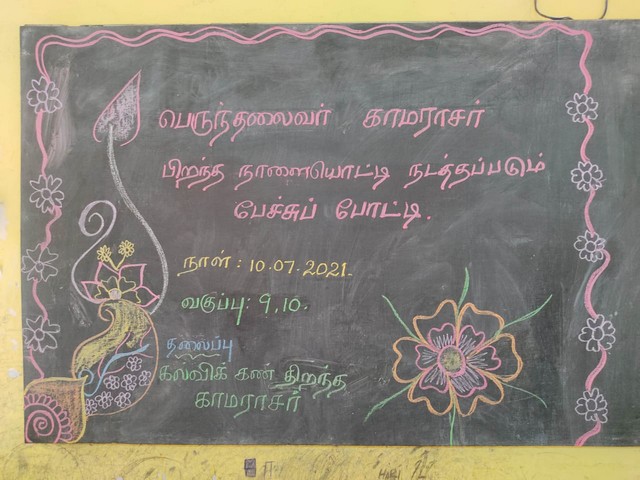 பெருந்தலைவர் காமராசர்
பிறந்த நாளையொட்டி நடத்தப்படும்
பேச்சுப் போட்டி.
நாள் : 10.07.2021.
வகுப்பு: 9,10.
தலைப்பு
கல்விக் கண் திறந்த
காமராசர்